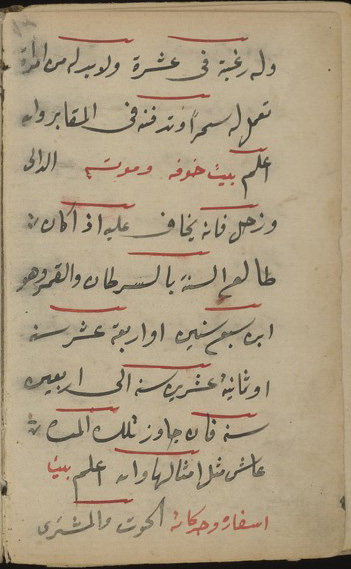 وله رغبة فى عشرة ولا بد له من امراة
تعمل له سحرا وتدفنه فى المقابر وان
اعلم بيت خوفه وموته الدالى
وزحل فانه يخاف عليه اذا كان
طالع السنة بالسرطان والقمر وهو
ابن سبع سنين او اربعة عشر سنة
او ثمانية عشرين سنة الى اربعين
سنة فان جاوز تلك المدة
عاش مثل امثالها وان اعلم بيت
اسفاره وحركاته الحوت والمشترى